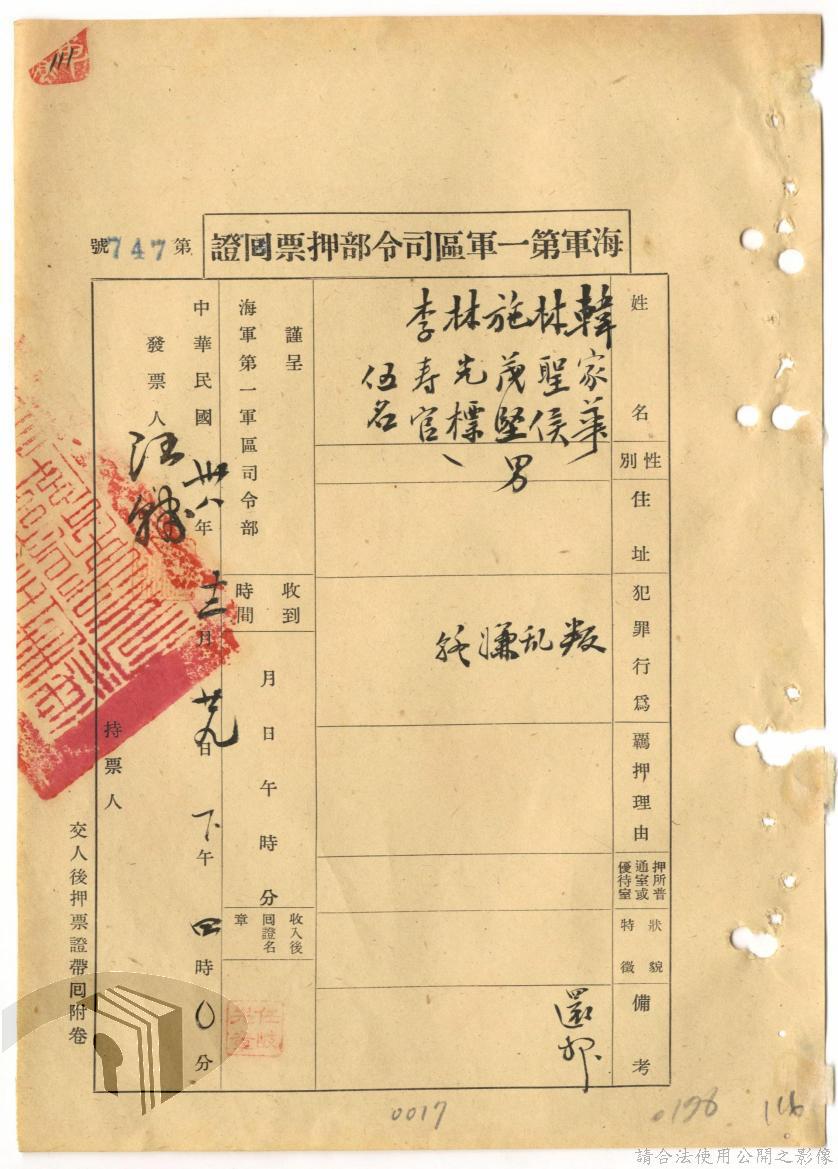 111
海軍第一軍區司令部押票回證
第747號
姓名
韓家華
林聖侯
施茂堅
林光標
李寿官
伍名
性別
男
住址
犯罪行為
叛乱嫌
羈押理由
押所普通室或優待室
特徵狀貌
備考
還押
謹呈
海軍第一軍區司令部
收到時間
月日午時分
收入後回證名章
中華民國卅八年十二月廿九日下午四時0分
發票人
汪
持票人
交人後押票證帶回附卷
0017
0176
116
請合法使用公開之影像